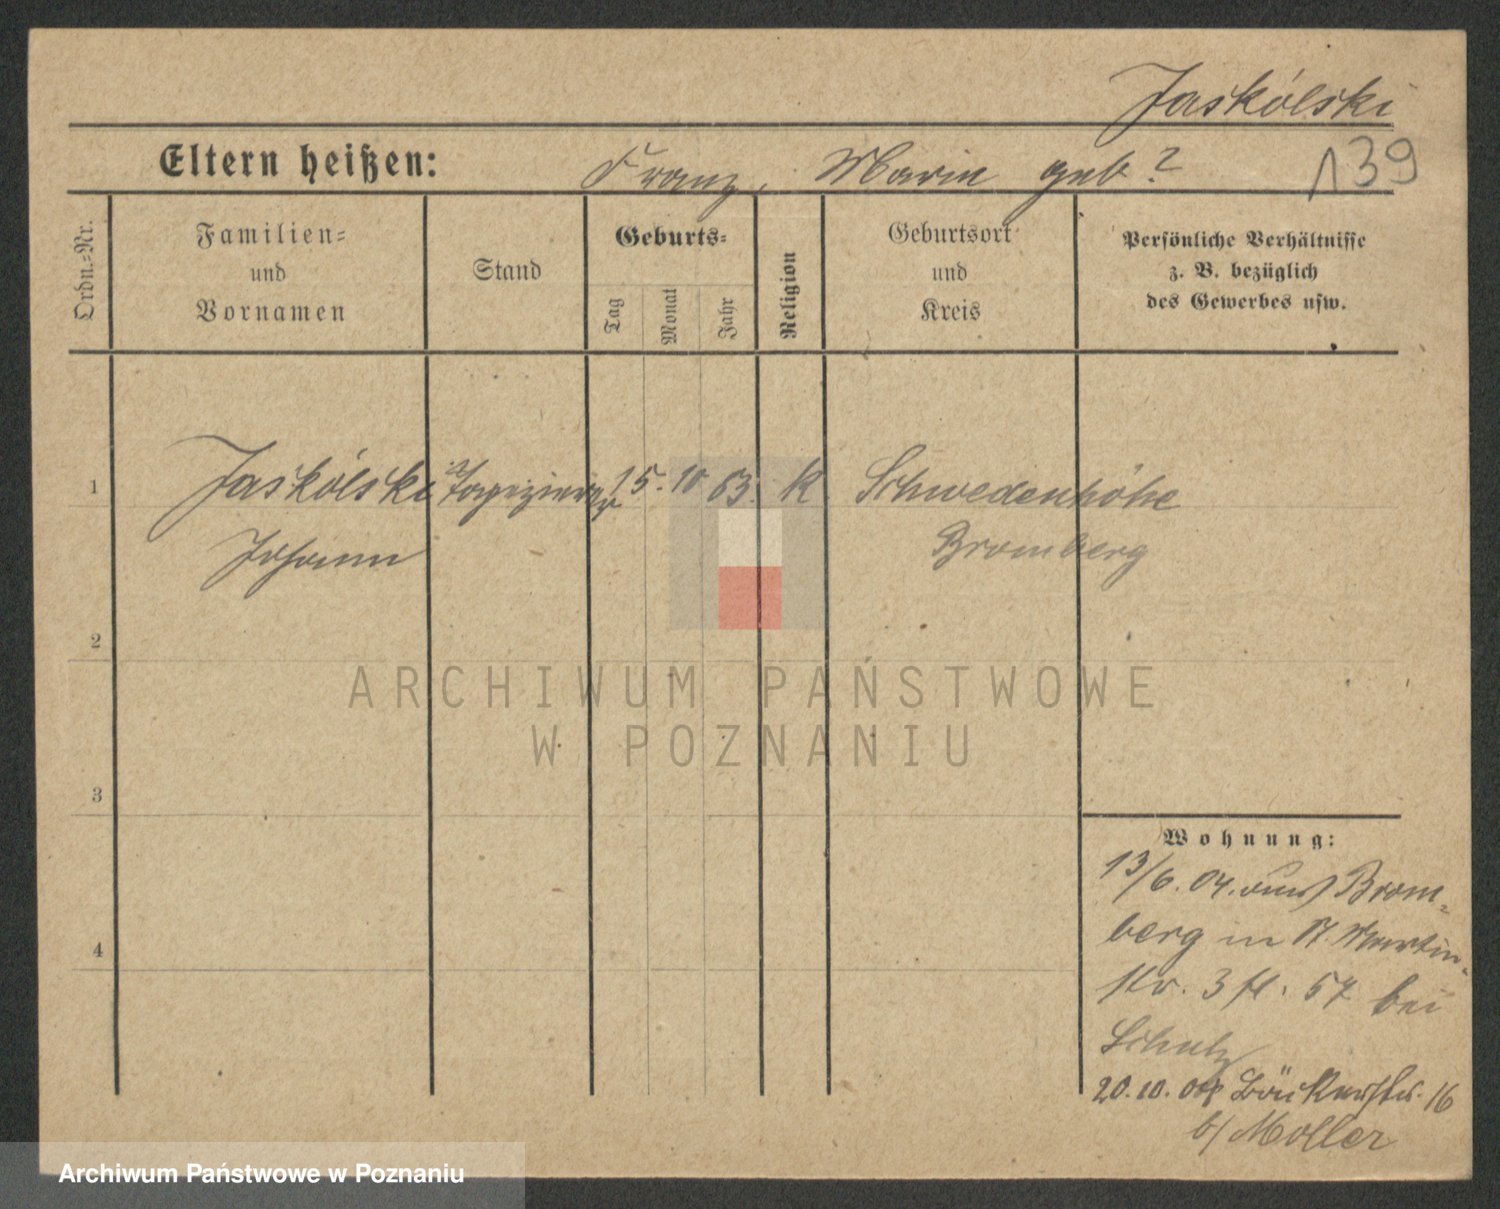 Jaskólski
139
Eltern heißen: Franz, Marie geb?
Ordn.-Nr.
Familien=
und
Vornamen
Stand
Geburts=
Tag
Monat
Jahr
Religion
Geburtsort
und
Kreis
Persönliche Verhältnisse
z. B. bezüglich
des Gewerbes usw.
1 Jaskólski Tapezierer 15. 10 63. K. Schwedenhöhe
Johann Bromberg
2
3
4
Wohnung:
13/6. 04. aus Brom-
berg in St. Martin-
str. 3 fl. 57 bei
Schulz
20.10. 04 Bäckerstr. 16
b/ Moller
ARCHIWUM PAŃSTWOWE
W POZNANIU
Archiwum Państwowe w Poznaniu